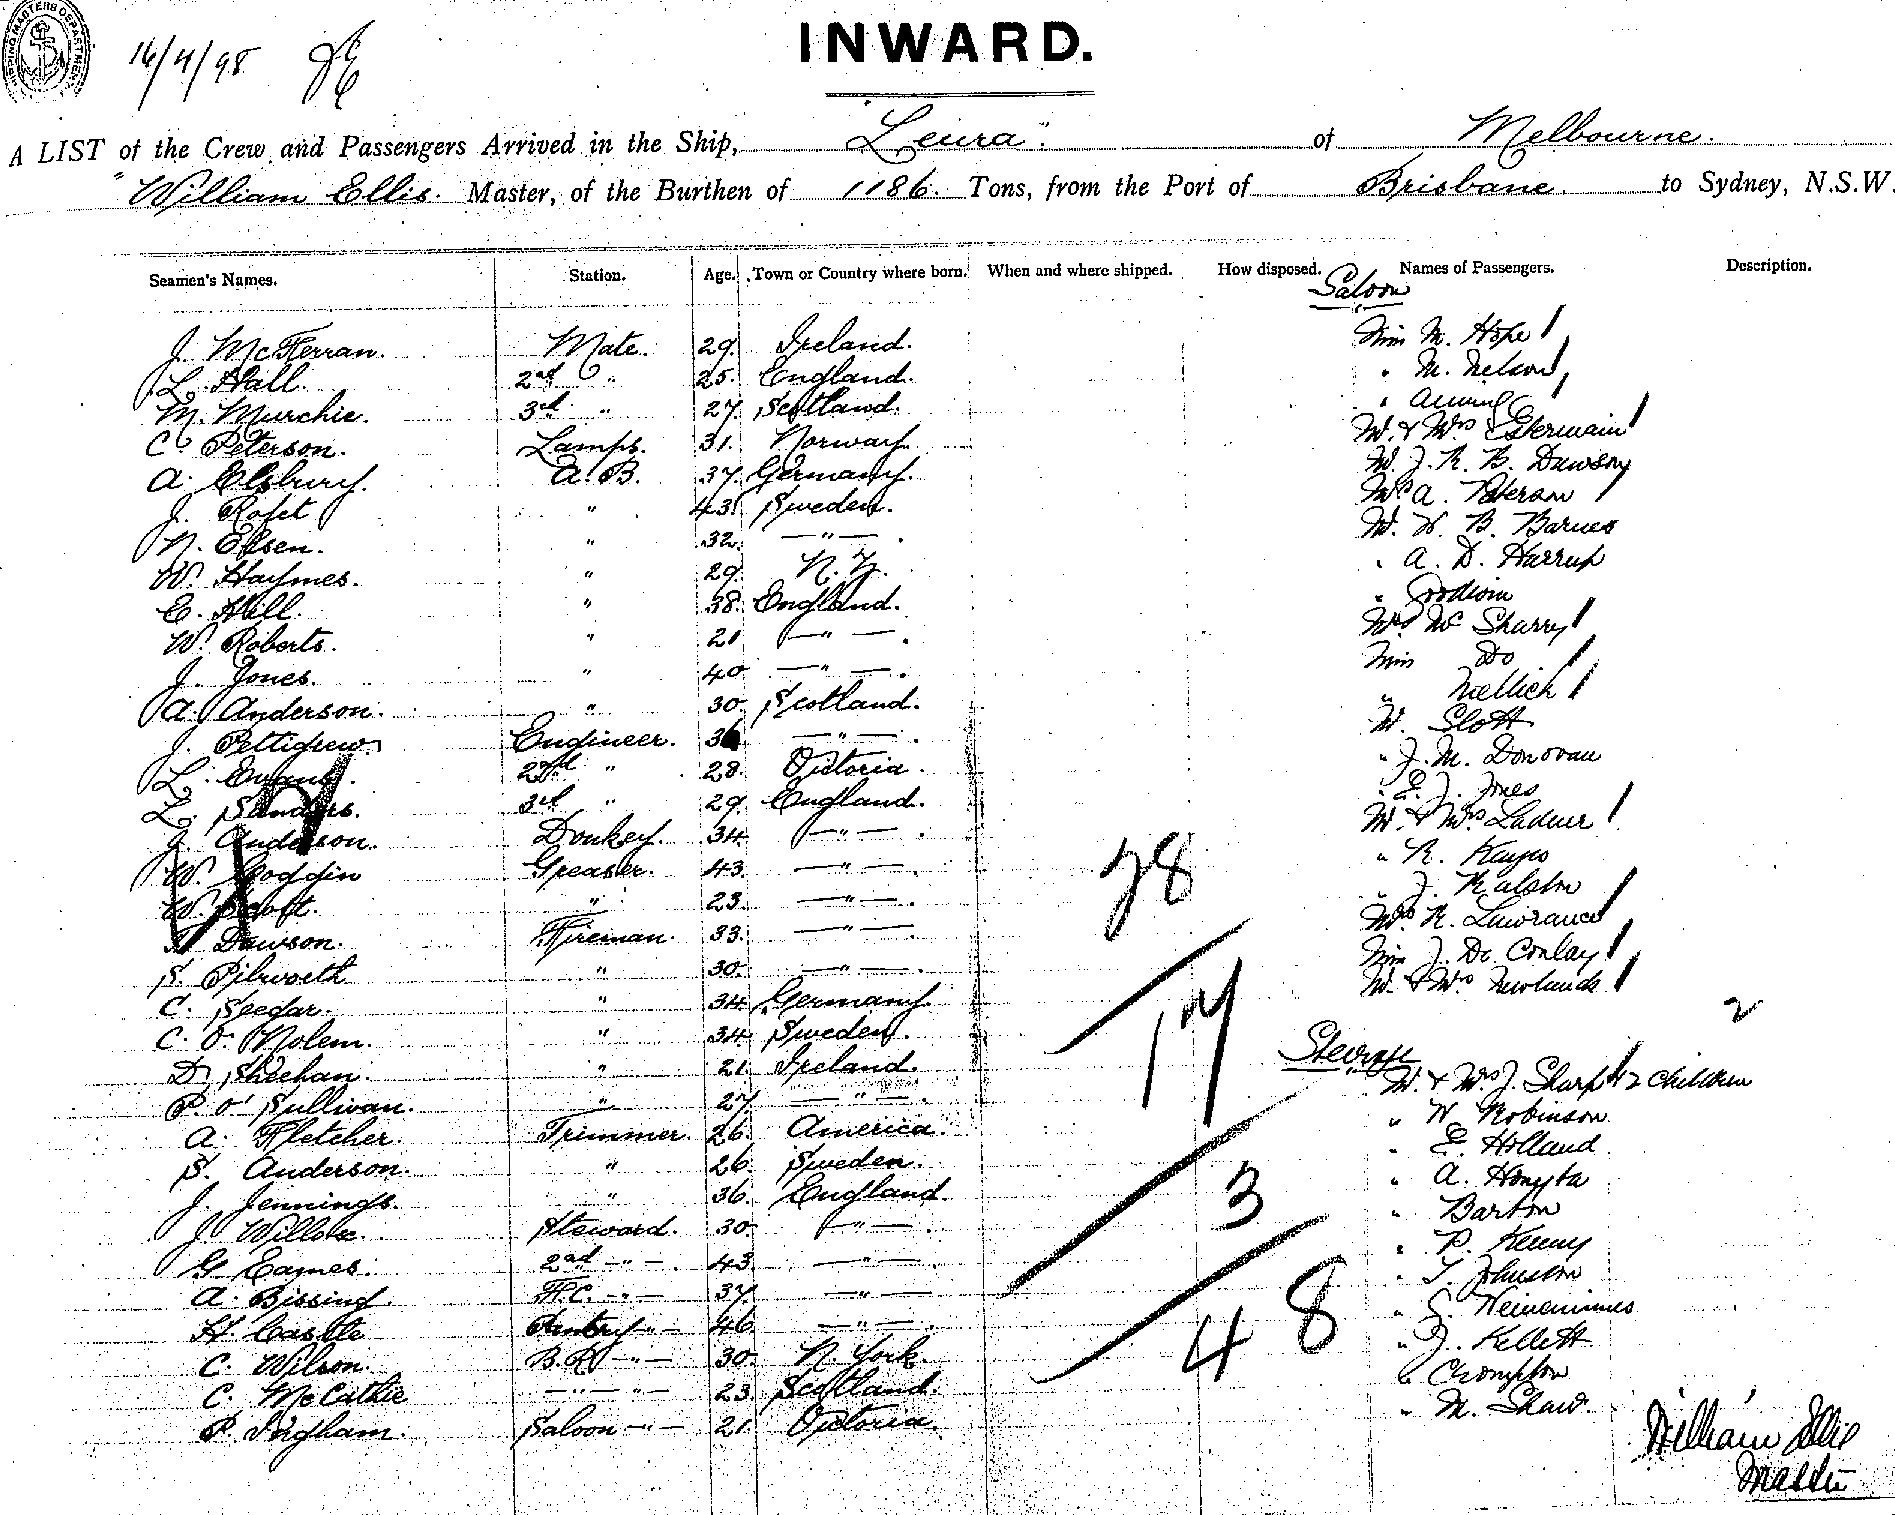 SHIPPING MASTERS DEPARTMENT
16/4/98
INWARD.
A LIST of the Crew and Passengers Arrived in the Ship, "Leura" of Melbourne.
William Ellis. Master, of the Burthen of 1186. Tons, from the Port of Brisbane to Sydney, N.S.W.
Seamen's Names. Station. Age. Town or Country where born. When and where shipped. How disposed. Names of Passengers. Description.
Saloon
J. McFerran. Mate. 29. Ireland. Miss M. Hope
L. Hall. 2nd " 25. England. " M. Nelson
M. Murchie. 3rd " 27. Scotland. "
C. Peterson. Lamps. 31. Norway. Mr. & Mrs
A. Elsbury. A.B. 37. Germany. Mr. J. R. B. Dawson
J. " 43. Sweden. Mrs A. Paterson
N. Elsen. " 32. — " — . Mr. W. B. Barnes
W. Haymes. " 29. N.Z. " A. D. Harrup
E. Hill. " 38. England. " Goodwin
W. Roberts. " 21 — " — . Mrs Mc Sharry
J. Jones. " 40 — " — . Miss Do
A. Anderson. " 30. Scotland. "
J. Pettigrew. Engineer. 36 — " — . Mr. Slott
L. Evans. 2nd " 28. Victoria. " J. M. Donovan
L. Sanders. 3rd " 29. England. " E. J. Jones
J. Anderson. Donkey. 34. — " — . Mr. & Mrs Ladner
W. Goddin Greaser. 43. — " — . " R. Kayes
W. Scott. " 23. — " — . " J. Ralston
Dawson. Fireman. 33. — " — . Mrs. R. Lawrance
S. Pilworth " 30. — " — . Miss J. De Conlay
C. Seedar. " 34. Germany. Mr. & Mrs Newlands
C. O. Nolem. " 34. Sweden. 2
Steerage
D. Sheehan. " 21. Ireland. Mr. & Mrs J. Sharp & 2 children
P. O'Sullivan. " 27. — " — " W. Robinson
A. Fletcher. Trimmer. 26. America. " E. Holland
S. Anderson. " 26. Sweden. " A.
J. Jennings. " 36. England. " Barton
J. Steward. 30. — " — . " P. Kenny
G. Eames. 2nd — " — . 43. — " — " T. Johnston
A. Bissing. F.C. — " — 37. — " — " G.
H. Castle Pantry — " — 46. — " — . " J. Kellett
C. Wilson. B.R. — " — 30. N. York. " Crompton
C. McCathie — " — " — 23. Scotland. " M. Shaw.
P. Ingham. Saloon — " — 21. Victoria.
28
17
3
48
William Ellis
Master